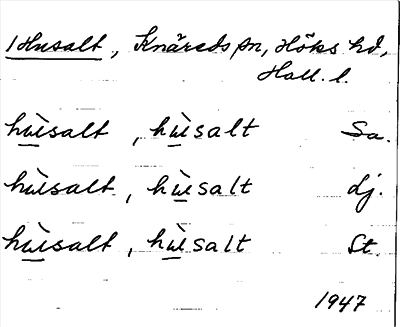 1 Husalt, Knäreds sn, Höks hd,
Hall. l.
hùsalt, hùsalt Sa.
hùsalt, hùsalt Lj.
hùsalt, hùsalt St.
1947